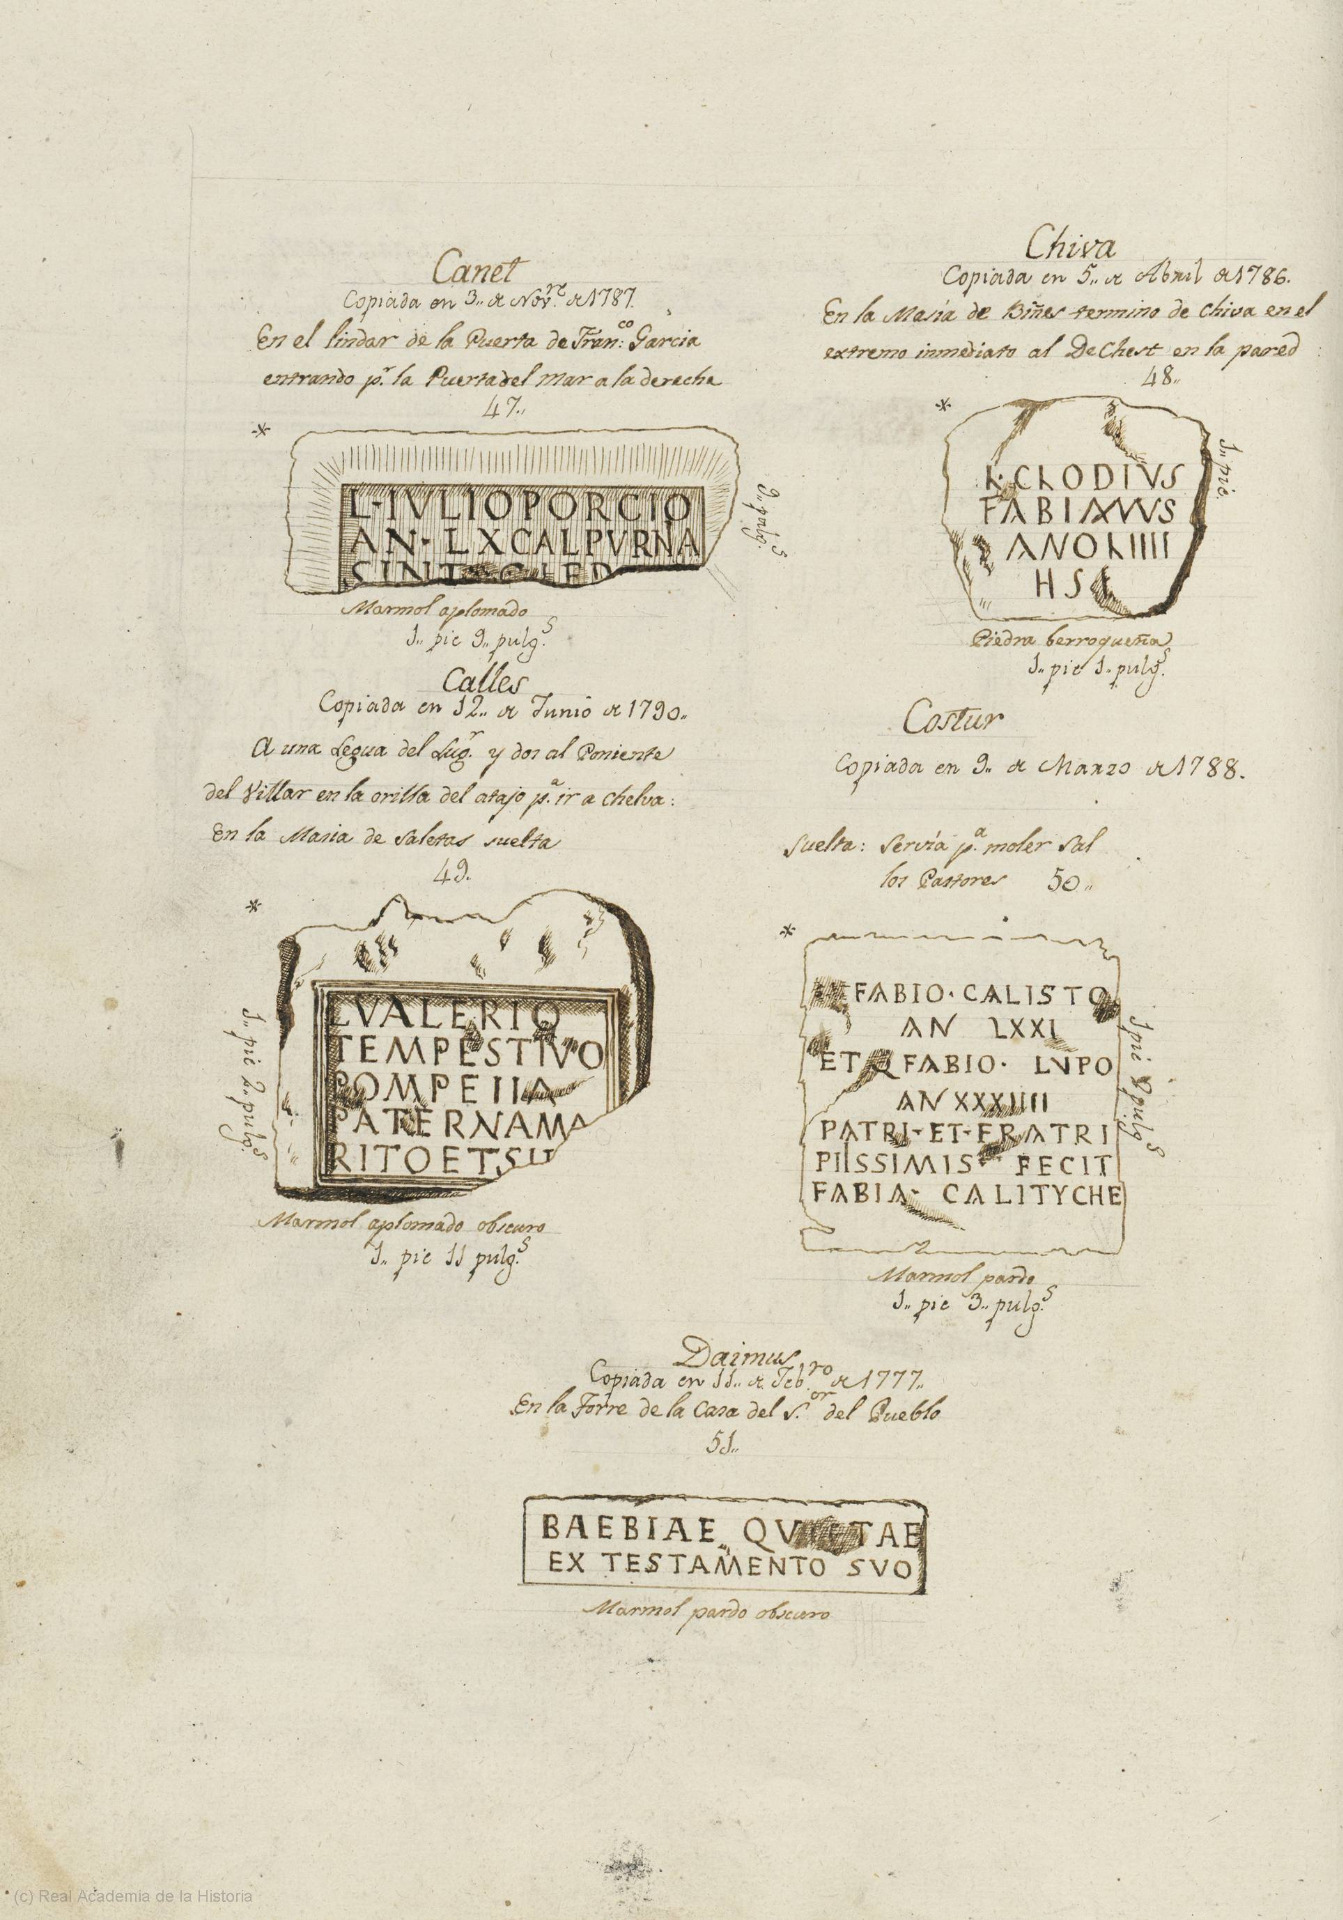 Canet
Copiada en 3,, de Nov.re de 1787.
En el lindar de la Puerta de Fran:co Garcia
entrando p.r la Puerta del Mar a la derecha
47,,
L·IVLIOPORCIO
AN·LXCALPVRNA
SINT
9,, pulg.s
Marmol aplomado
1,, pie 9,, pulg.s
Chiva
Copiada en 5,, de Abril de 1786.
En la Masía de Biñes termino de Chiva en el
extremo inmediato al De Chest en la pared
48,,
K·CLODIVS
FABIANVS
ANOLIIII
HS
1,, pie.
Piedra berroqueña
1,, pie 1,, pulg.s
Calles
Copiada en 12,, de Junio de 1790,,
A una Legua del Lug.r y dos al Poniente
del Villar en la orilla del atajo p.a ir a Chelva:
En la Masia de Saletas suelta
49.
LVALERIO
TEMPESTIVO
POMPEIIA
PATERNAMA
RITOETSU
1,, pie 2,, pulg.s
Marmol aplomado obscuro
1,, pie 11 pulg.s
Costur
Copiada en 9,, de Marzo de 1788.
Suelta: Servía p.a moler Sal
los Pastores 50,,
FABIO·CALISTO
AN LXXI
ET Q FABIO· LVPO
AN XXXIIII
PATRI·ET·FRATRI
PIISSIMIS· FECIT
FABIA· CALITYCHE
1 pie 9 pulg.s
Marmol pardo
1,, pie 3,, pulg.s
Daimus
Copiada en 11,, de Feb.ro de 1777,,
En la Torre de la Casa del S.or del Pueblo
51,,
BAEBIAE QVIETAE
EX TESTAMENTO SVO
Marmol pardo obscuro
(c) Real Academia de la Historia